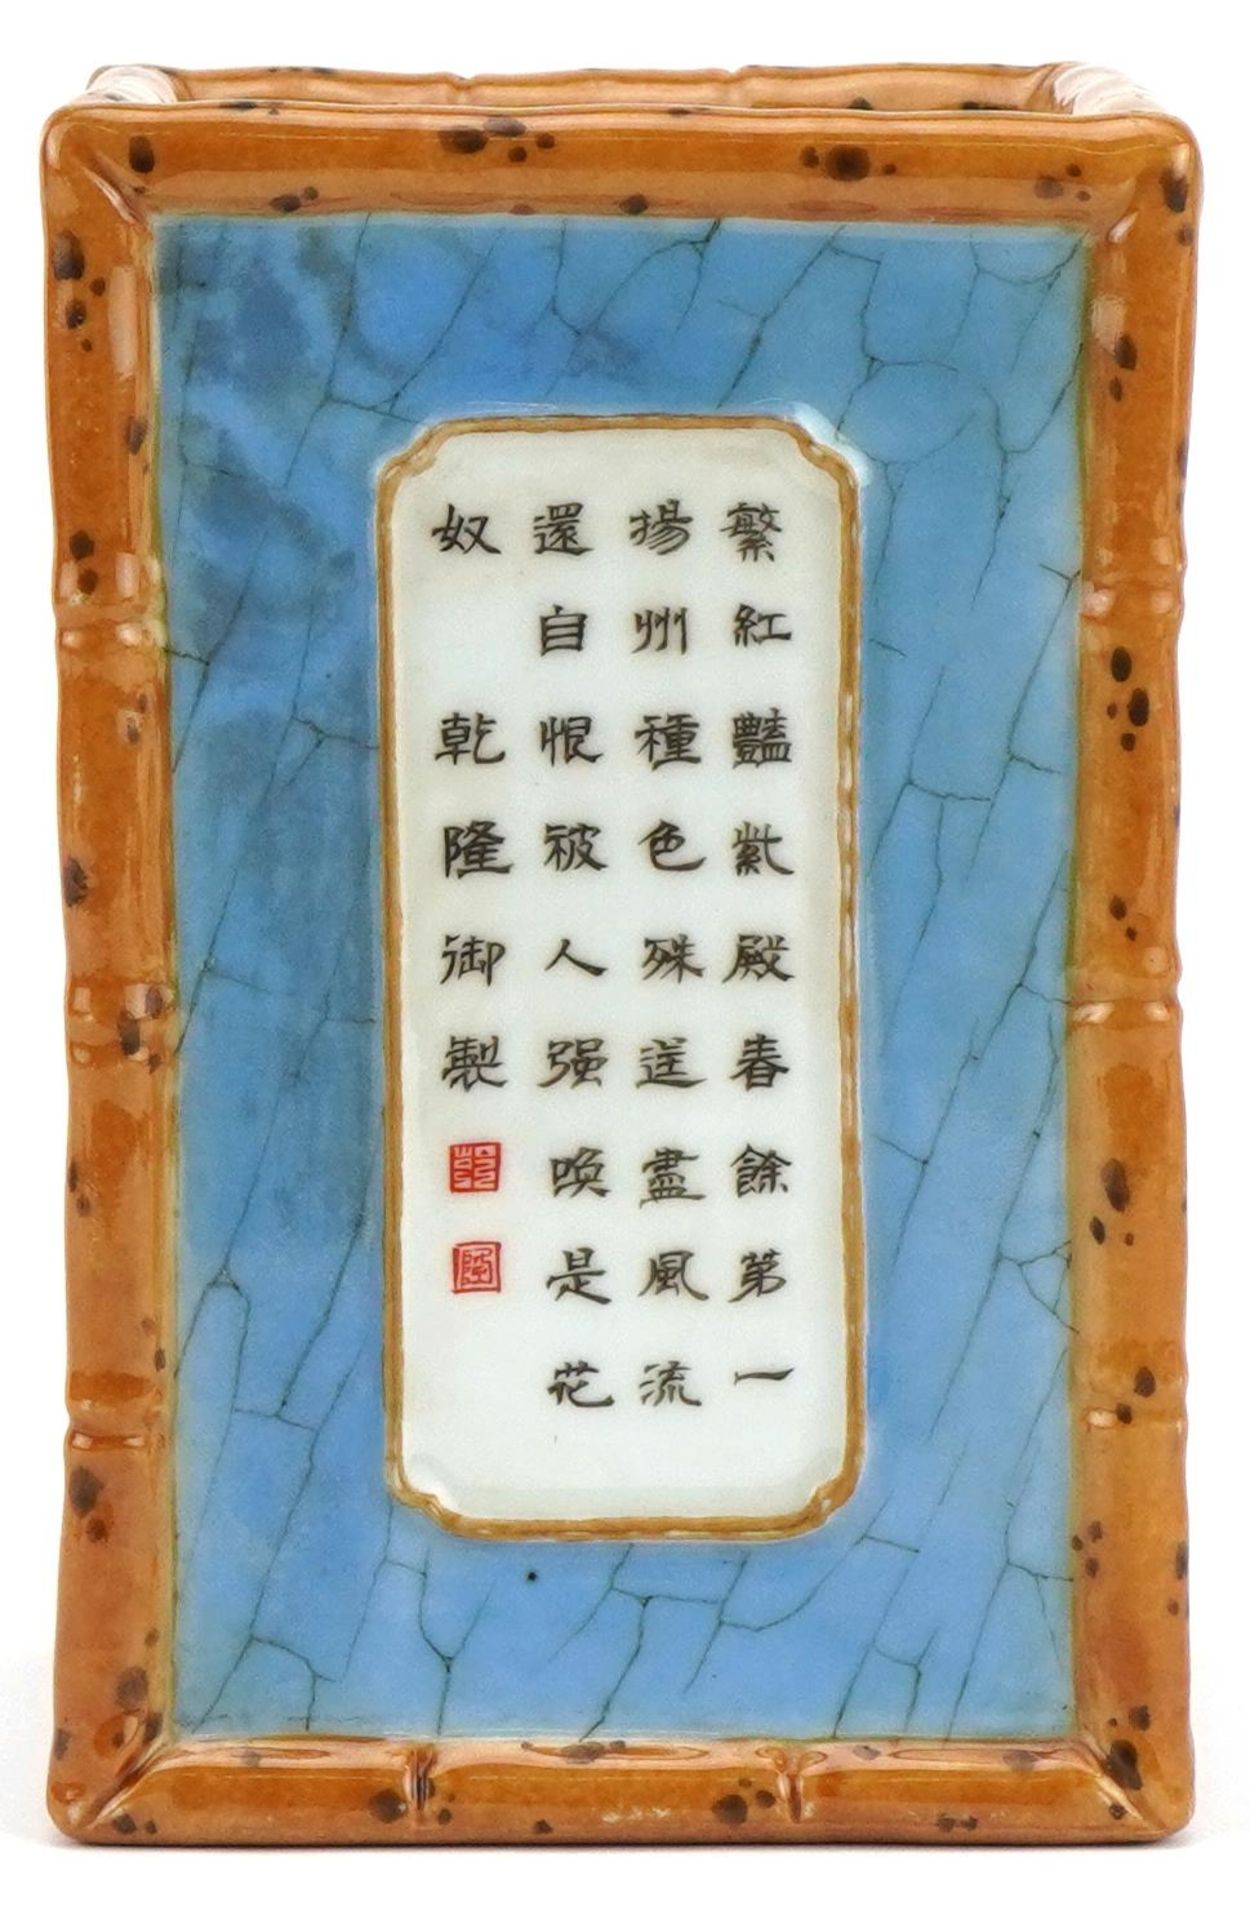 繁紅豔紫殿春餘第一
揚州種色殊送盡風流
還自恨被人强喚是花
奴 乾隆御製
乾
隆